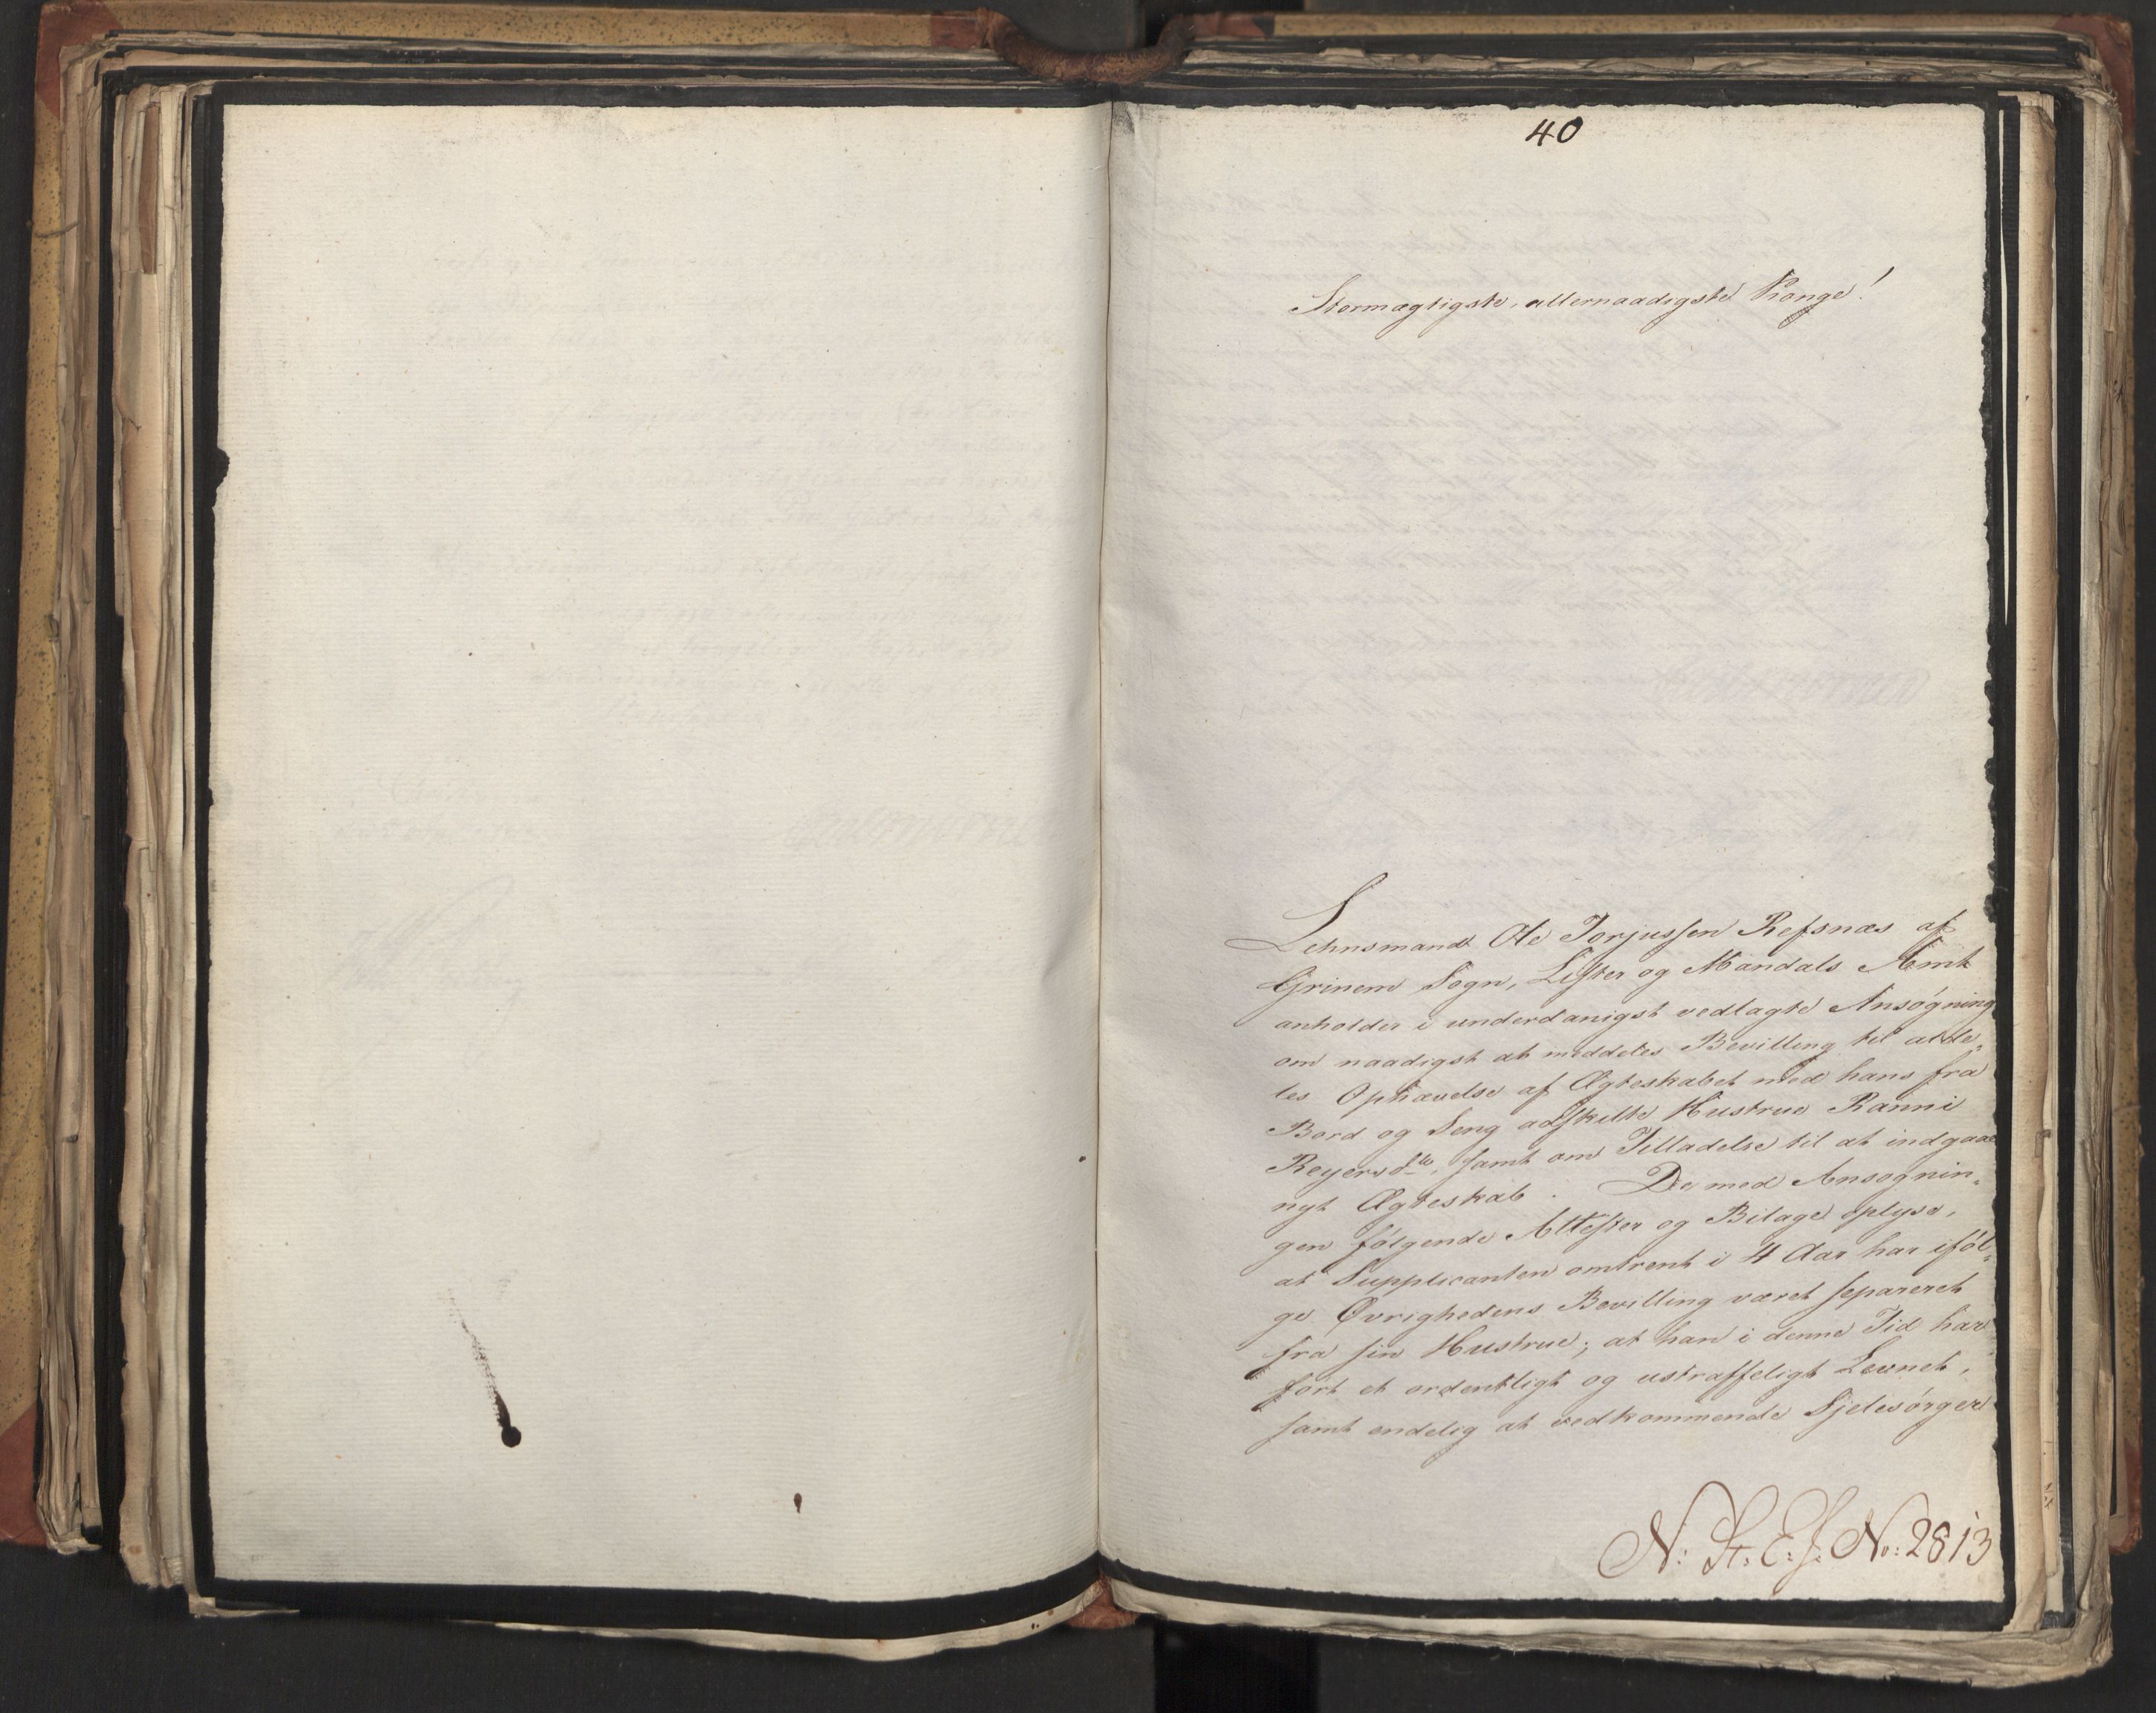 40
Stormægtigste, allernaadigste Konge!
Lehnsmand Ole Torjussen Refsnæs af
Grinem Sogn, Lister og Mandals Amt
anholder i underdanigst vedlagte Ansøgning
om naadigst at meddeles Bevilling til aldle-
les Ophævelse af Ægteskabet med hans fra
Bord og Seng adskilte Hustrue Ranni
Reyersdtr, samt om Tilladelse til at indgaae
nyt Ægteskab. De med Ansøgnin-
gen følgende Attester og Bilage oplyse,
at Supplicanten omtrent i 4 Aar har iføl-
ge Øvrighedens Bevilling været separeret
fra sin Hustrue; at han i denne Tid har
ført et ordentligt og ustraffeligt Levnet,
samt endelig at vedkommende Sjelesørger
N: St: E: J: No: 2813